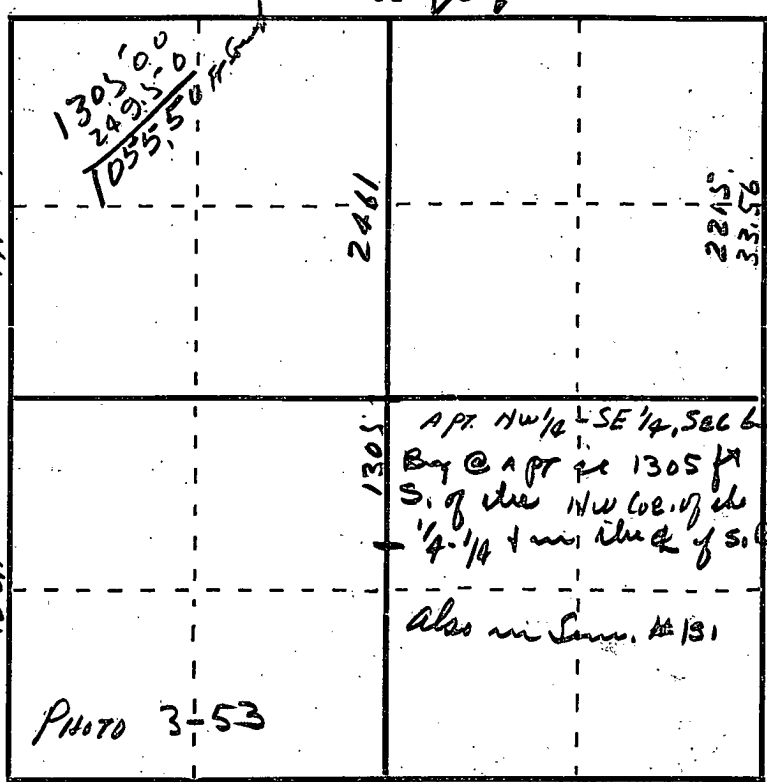 1305'00
249.50
1055.50 ft
2461
2215.
33.56
1305
A PT. NW 1/4 - SE 1/4, SEC 6
Beg @ A PT 1305 ft
S. of the NW Cor. of the
1/4-1/4 + in the ℄ of S.
Also in Surv. #131
PHOTO 3-53